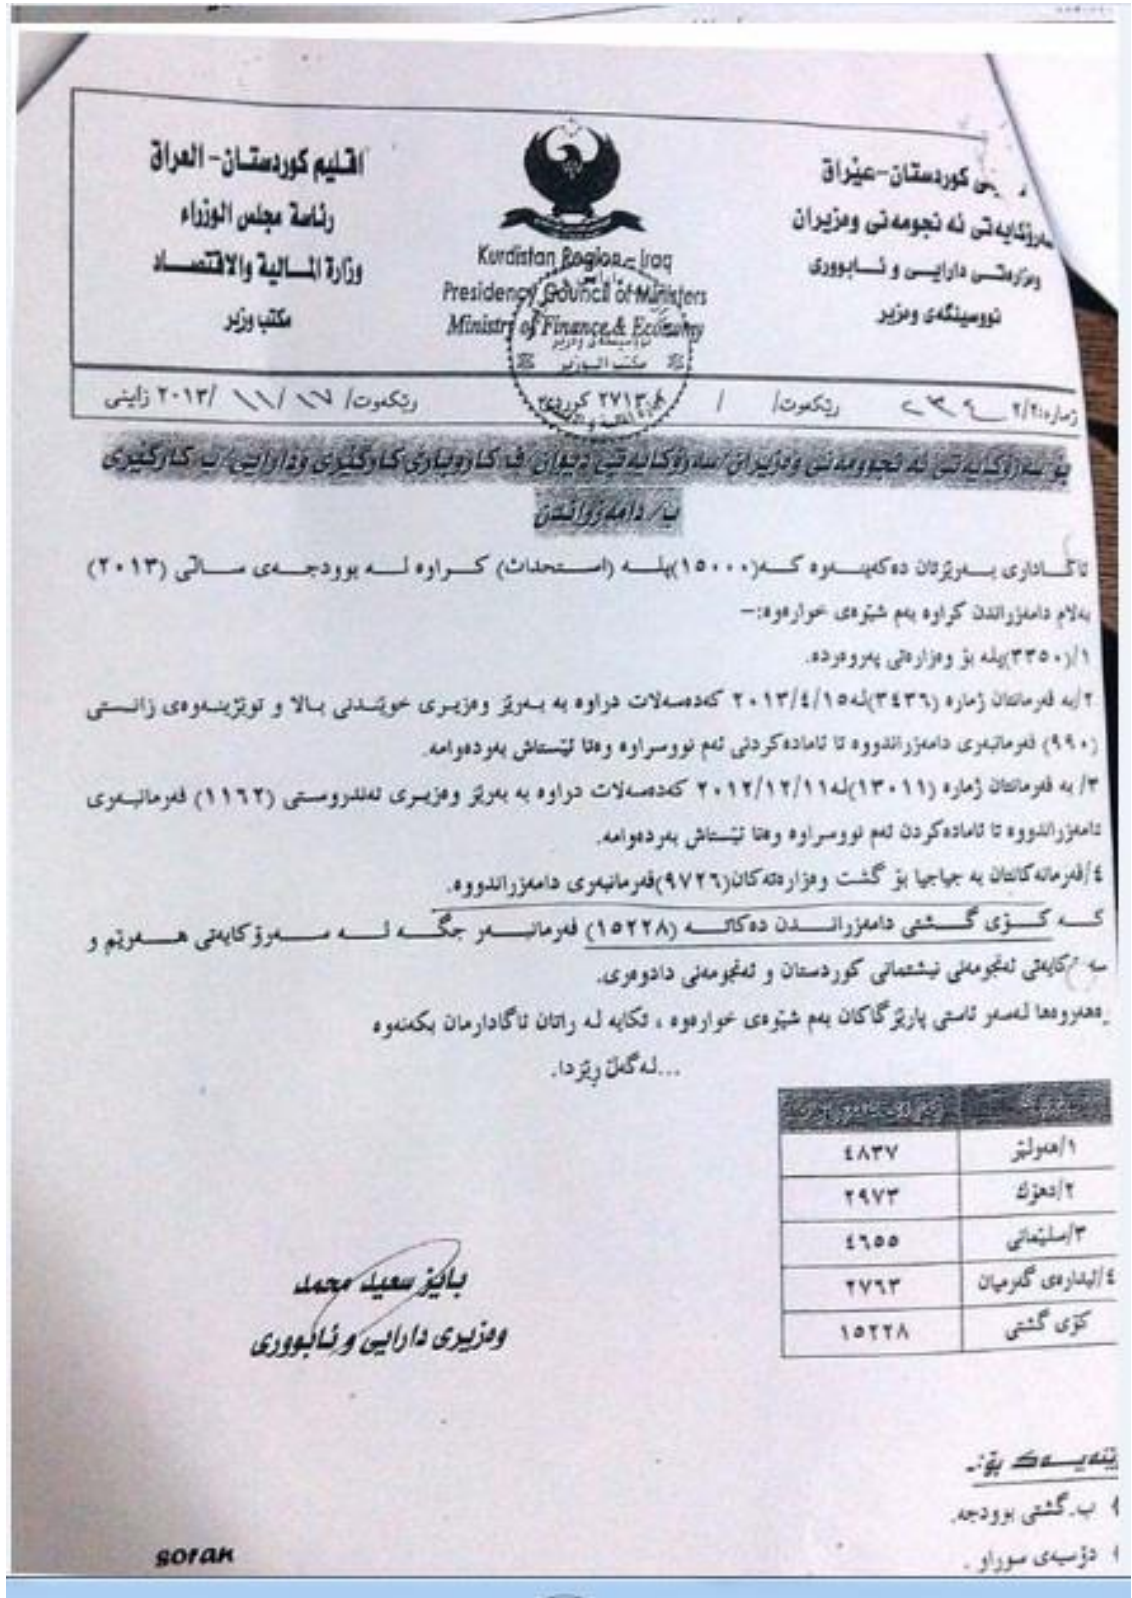 ـی کوردستان-عێراق
سەرۆکایەتی ئە نجومەنی وەزیران
وەزارەتـی دارایـی و ئـابووری
نووسینگەی وەزیر
Kurdistan Region - Iraq
Presidency Council of Ministers
Ministry of Finance & Economy
اقلیم كوردستان- العراق
رئاسة مجلس الوزراء
وزارة المـالیة والاقتصـاد
مكتب وزیر
مكتب الـوزیر
ژمارە:٢/٢
ڕێکەوت/ / / ٢٧١٣ کوردی
ڕێکەوت/ ١٧/ ١١/ ٢٠١٣ زاینی
بۆ سەرۆکایەتی ئە نجوومەنی وەزیران/سەرۆکایەتی دیوان/ف کاروباری کارگێری ودارایی/ب کارگێری
ب/ دامەزراندن
ئاگـاداری بـەڕێزتان دەکەینـەوە کـە(١٥٠٠٠)پلـە (اسـتحداث) کـراوە لـە بوودجـەی سـاڵی (٢٠١٣)
بەلام دامەزراندن کراوە بەم شێوەی خوارەوە:-
١/(٣٣٥٠)پلە بۆ وەزارەتی پەروەردە.
٢/بە فەرمانتان ژمارە (٣٤٣٦)لە٢٠١٣/٤/١٥ کەدەسەلات دراوە بە بـەڕێز وەزیـری خوێنـدنی بـالا و توێژینـەوەی زانـستی
(٩٩٠) فەرمانبەری دامەزراندووە تا ئامادەکردنی ئەم نووسراوە وەتا ئێستاش بەردەوامە.
٣/ بە فەرمانتان ژمارە (١٣٠١١)لە٢٠١٢/١٢/١١ کەدەسەلات دراوە بە بەڕێز وەزیـری تەندروستی (١١٦٢) فەرمانبـەری
دامەزراندووە تا ئامادەکردن ئەم نووسراوە وەتا ئێستاش بەردەوامە.
٤/فەرمانەکانتان بە جیاجیا بۆ گشت وەزارەتەکان(٩٧٢٦)فەرمانبەری دامەزراندووە.
کـە کـۆی گـشتی دامەزرانـدن دەکاتـە (١٥٢٢٨) فەرمانبـەر جگـە لـە سـەرۆکایەتی هـەرێم و
سە کایەتی ئەنجومەنی نیشتمانی کوردستان و ئەنجومەنی دادوەری.
هەروەها لەسەر ئاستی پارێزگاکان بەم شێوەی خوارەوە ، تکایە لە ڕاتان ئاگادارمان بکەنەوە
...لەگەڵ ڕێزدا.
١/هەولێر ٤٨٣٧
٢/دهۆك ٢٩٧٣
٣/سلێمانی ٤٦٥٥
٤/ئیدارەی گەرمیان ٢٧٦٣
کۆی گشتی ١٥٢٢٨
بایز سعید محمد
وەزیری دارایی و ئابووری
ـێنەیـەك بۆ:-
ب.گشتی بوودجە.
دۆسیەی سوراو .
soran